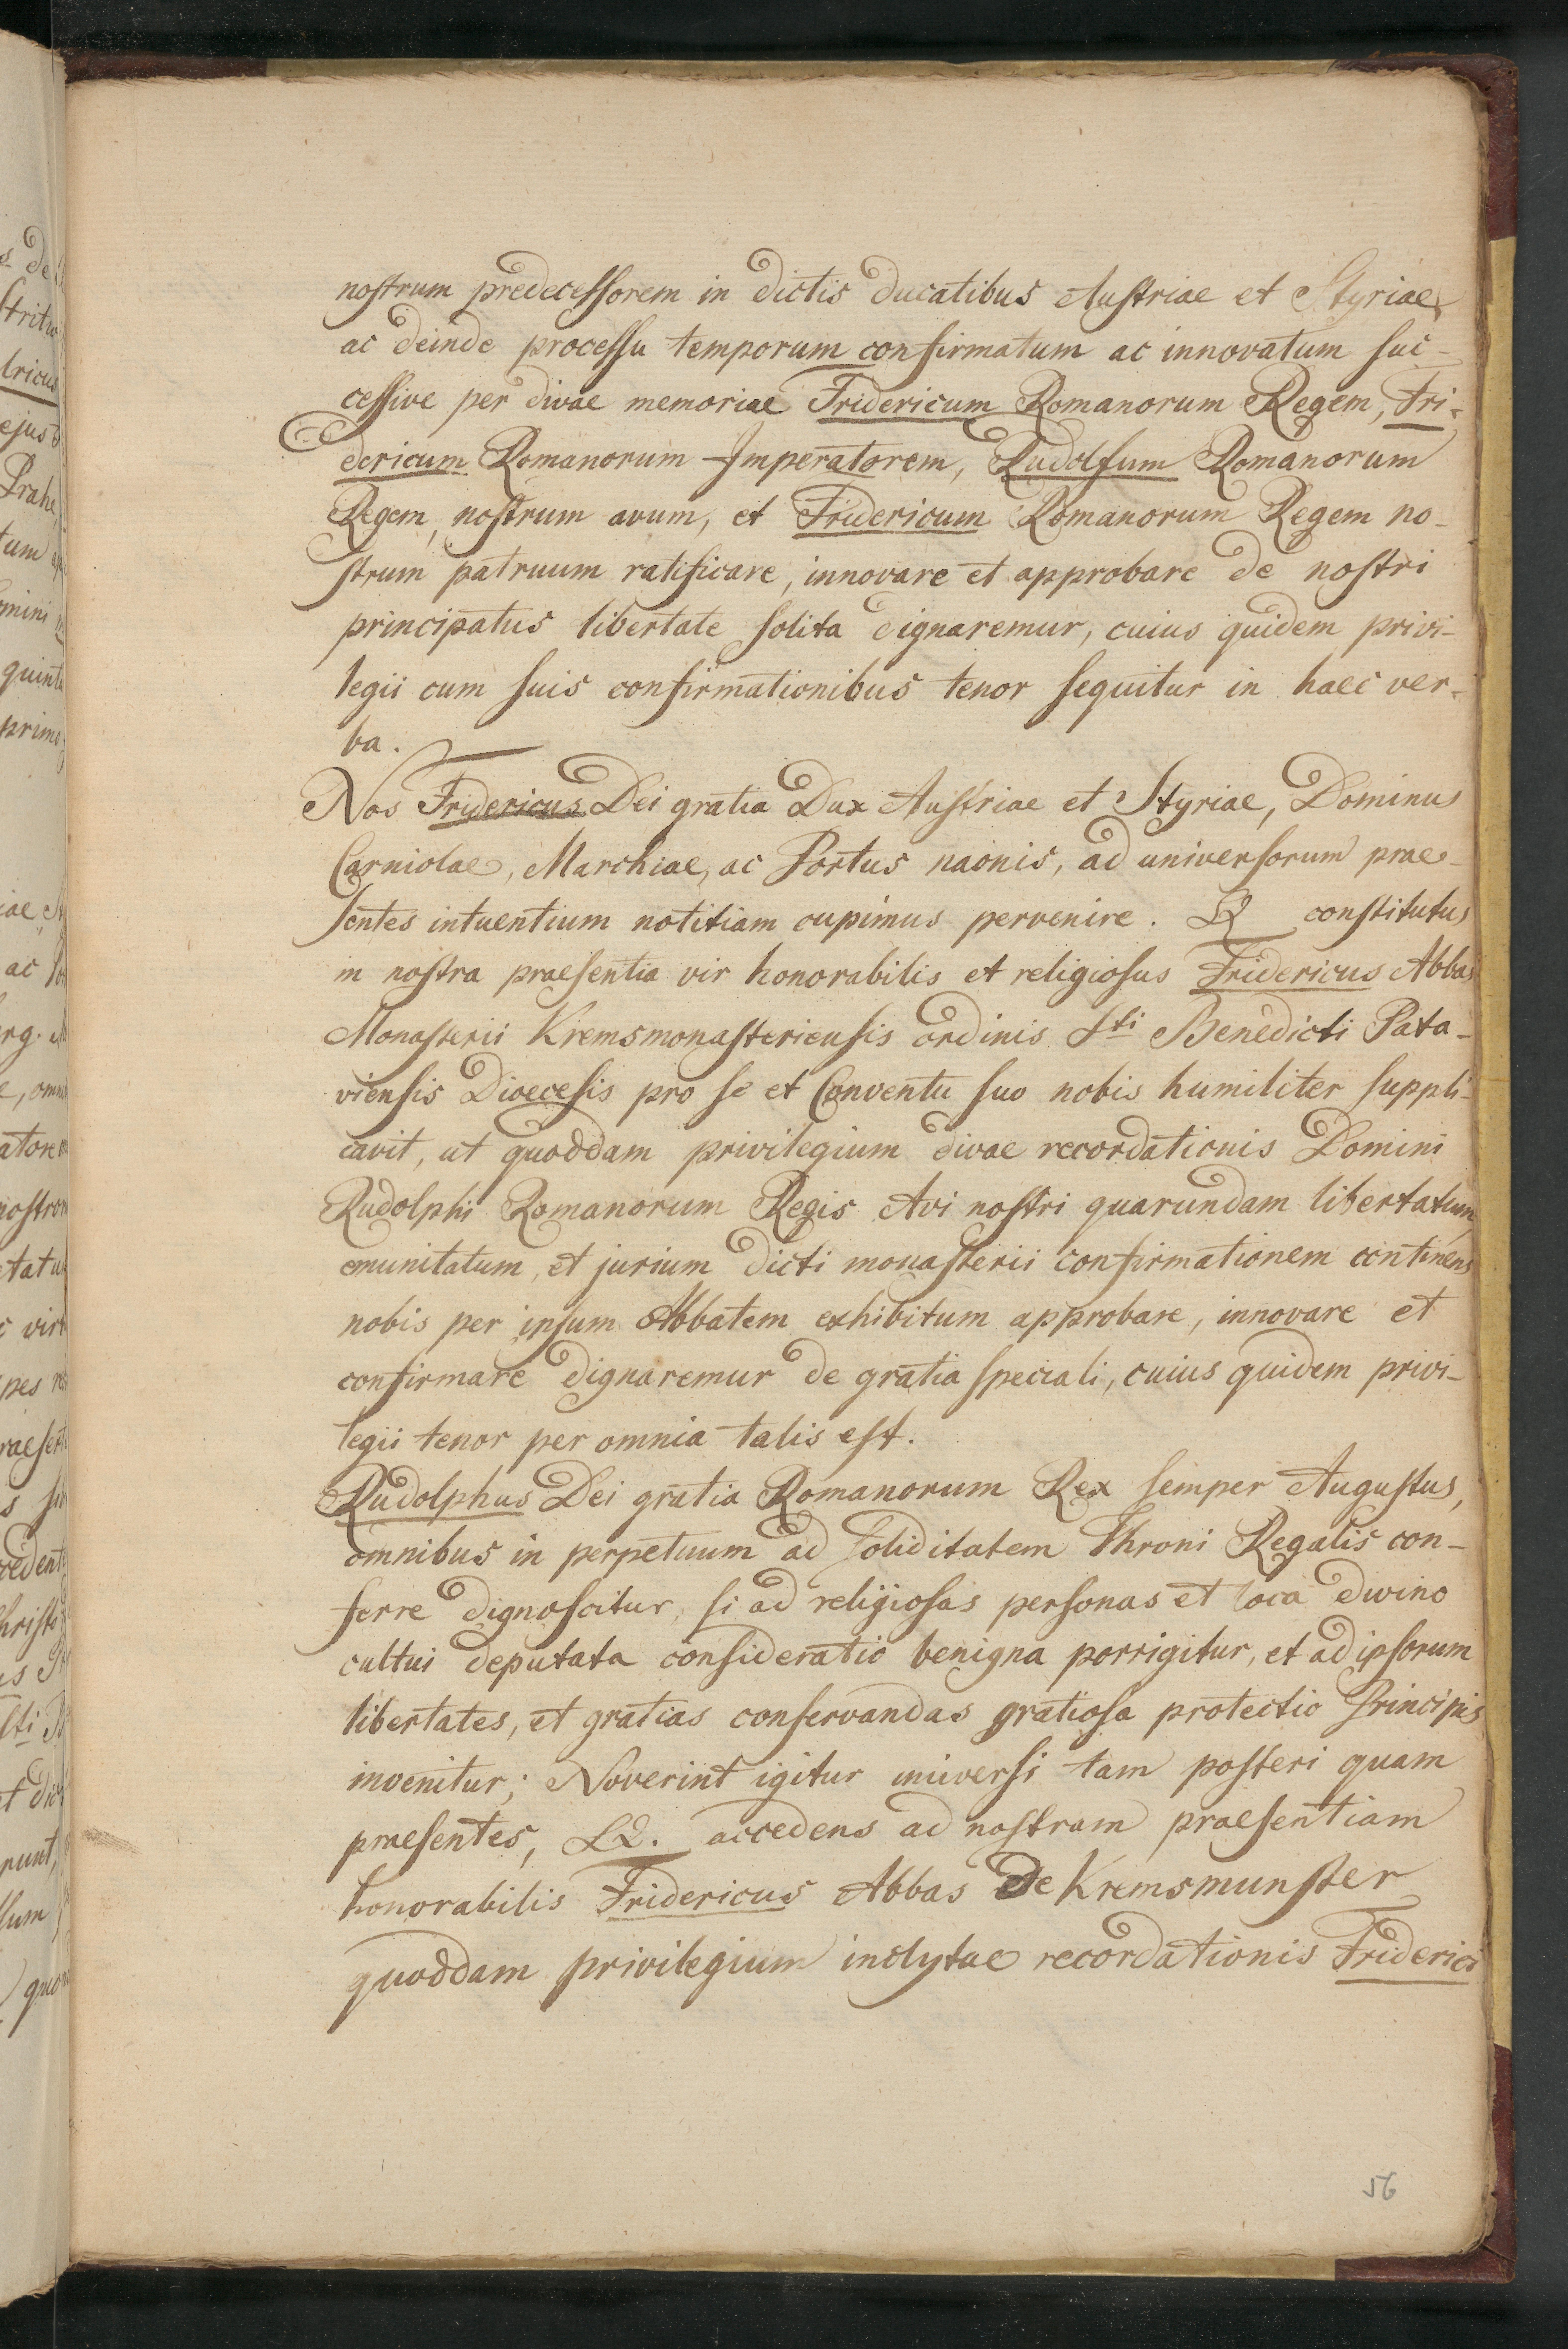 nostrum predecessorem in dictis ducatibus Austriae et Styriae,
ac deinde processu temporum confirmatum ac innovatum suc-
cessive per divae memoriae Fridericum Romanorum Regem, Fri-
dericum Romanorum Imperatorem, Rudolfum Romanorum
Regem, nostrum avum, et Fridericum Romanorum Regem no-
strum patruum ratificare, innovare et approbare de nostri
principatus libertate solita dignaremur, cuius quidem privi-
legii cum suis confirmationibus tenor sequitur in haec ver-
ba.
Nos Fridericus Dei gratia Dux Austriae et Styriae, Dominus
Carniolae, Marchiae, ac Portus naonis, ad universorum prae-
sentes intuentium notitiam cupimus pervenire. Q constitutus
in nostra praesentia vir honorabilis et religiosus Fridericus Abbas
Monasterii Kremsmonasteriensis ordinis Sti Benedicti Pata-
viensis Dioecesis pro se et Conventu suo nobis humiliter suppli-
cavit, ut quoddam privilegium divae recordationis Domini
Rudolphi Romanorum Regis Avi nostri quarundam libertatum,
emunitatum, et jurium dicti monasterii confirmationem continens
nobis per ipsum Abbatem exhibitum approbare, innovare et
confirmare dignaremur de gratia speciali, cuius quidem privi-
legii tenor per omnia talis est.
Rudolphus Dei gratia Romanorum Rex semper Augustus,
omnibus in perpetuum ad soliditatem Throni Regalis con-
ferre dignoscitur, si ad religiosas personas et loca divino
cultui deputata consideratio benigna porrigitur, et ad ipsorum
libertates, et gratias conservandas gratiosa protectio Principis
invenitur; Noverint igitur universi tam posteri quam
praesentes, Q. accedens ad nostram praesentiam
honorabilis Fridericus Abbas de Kremsmunster
quoddam privilegium inclytae recordationis Friderici
56